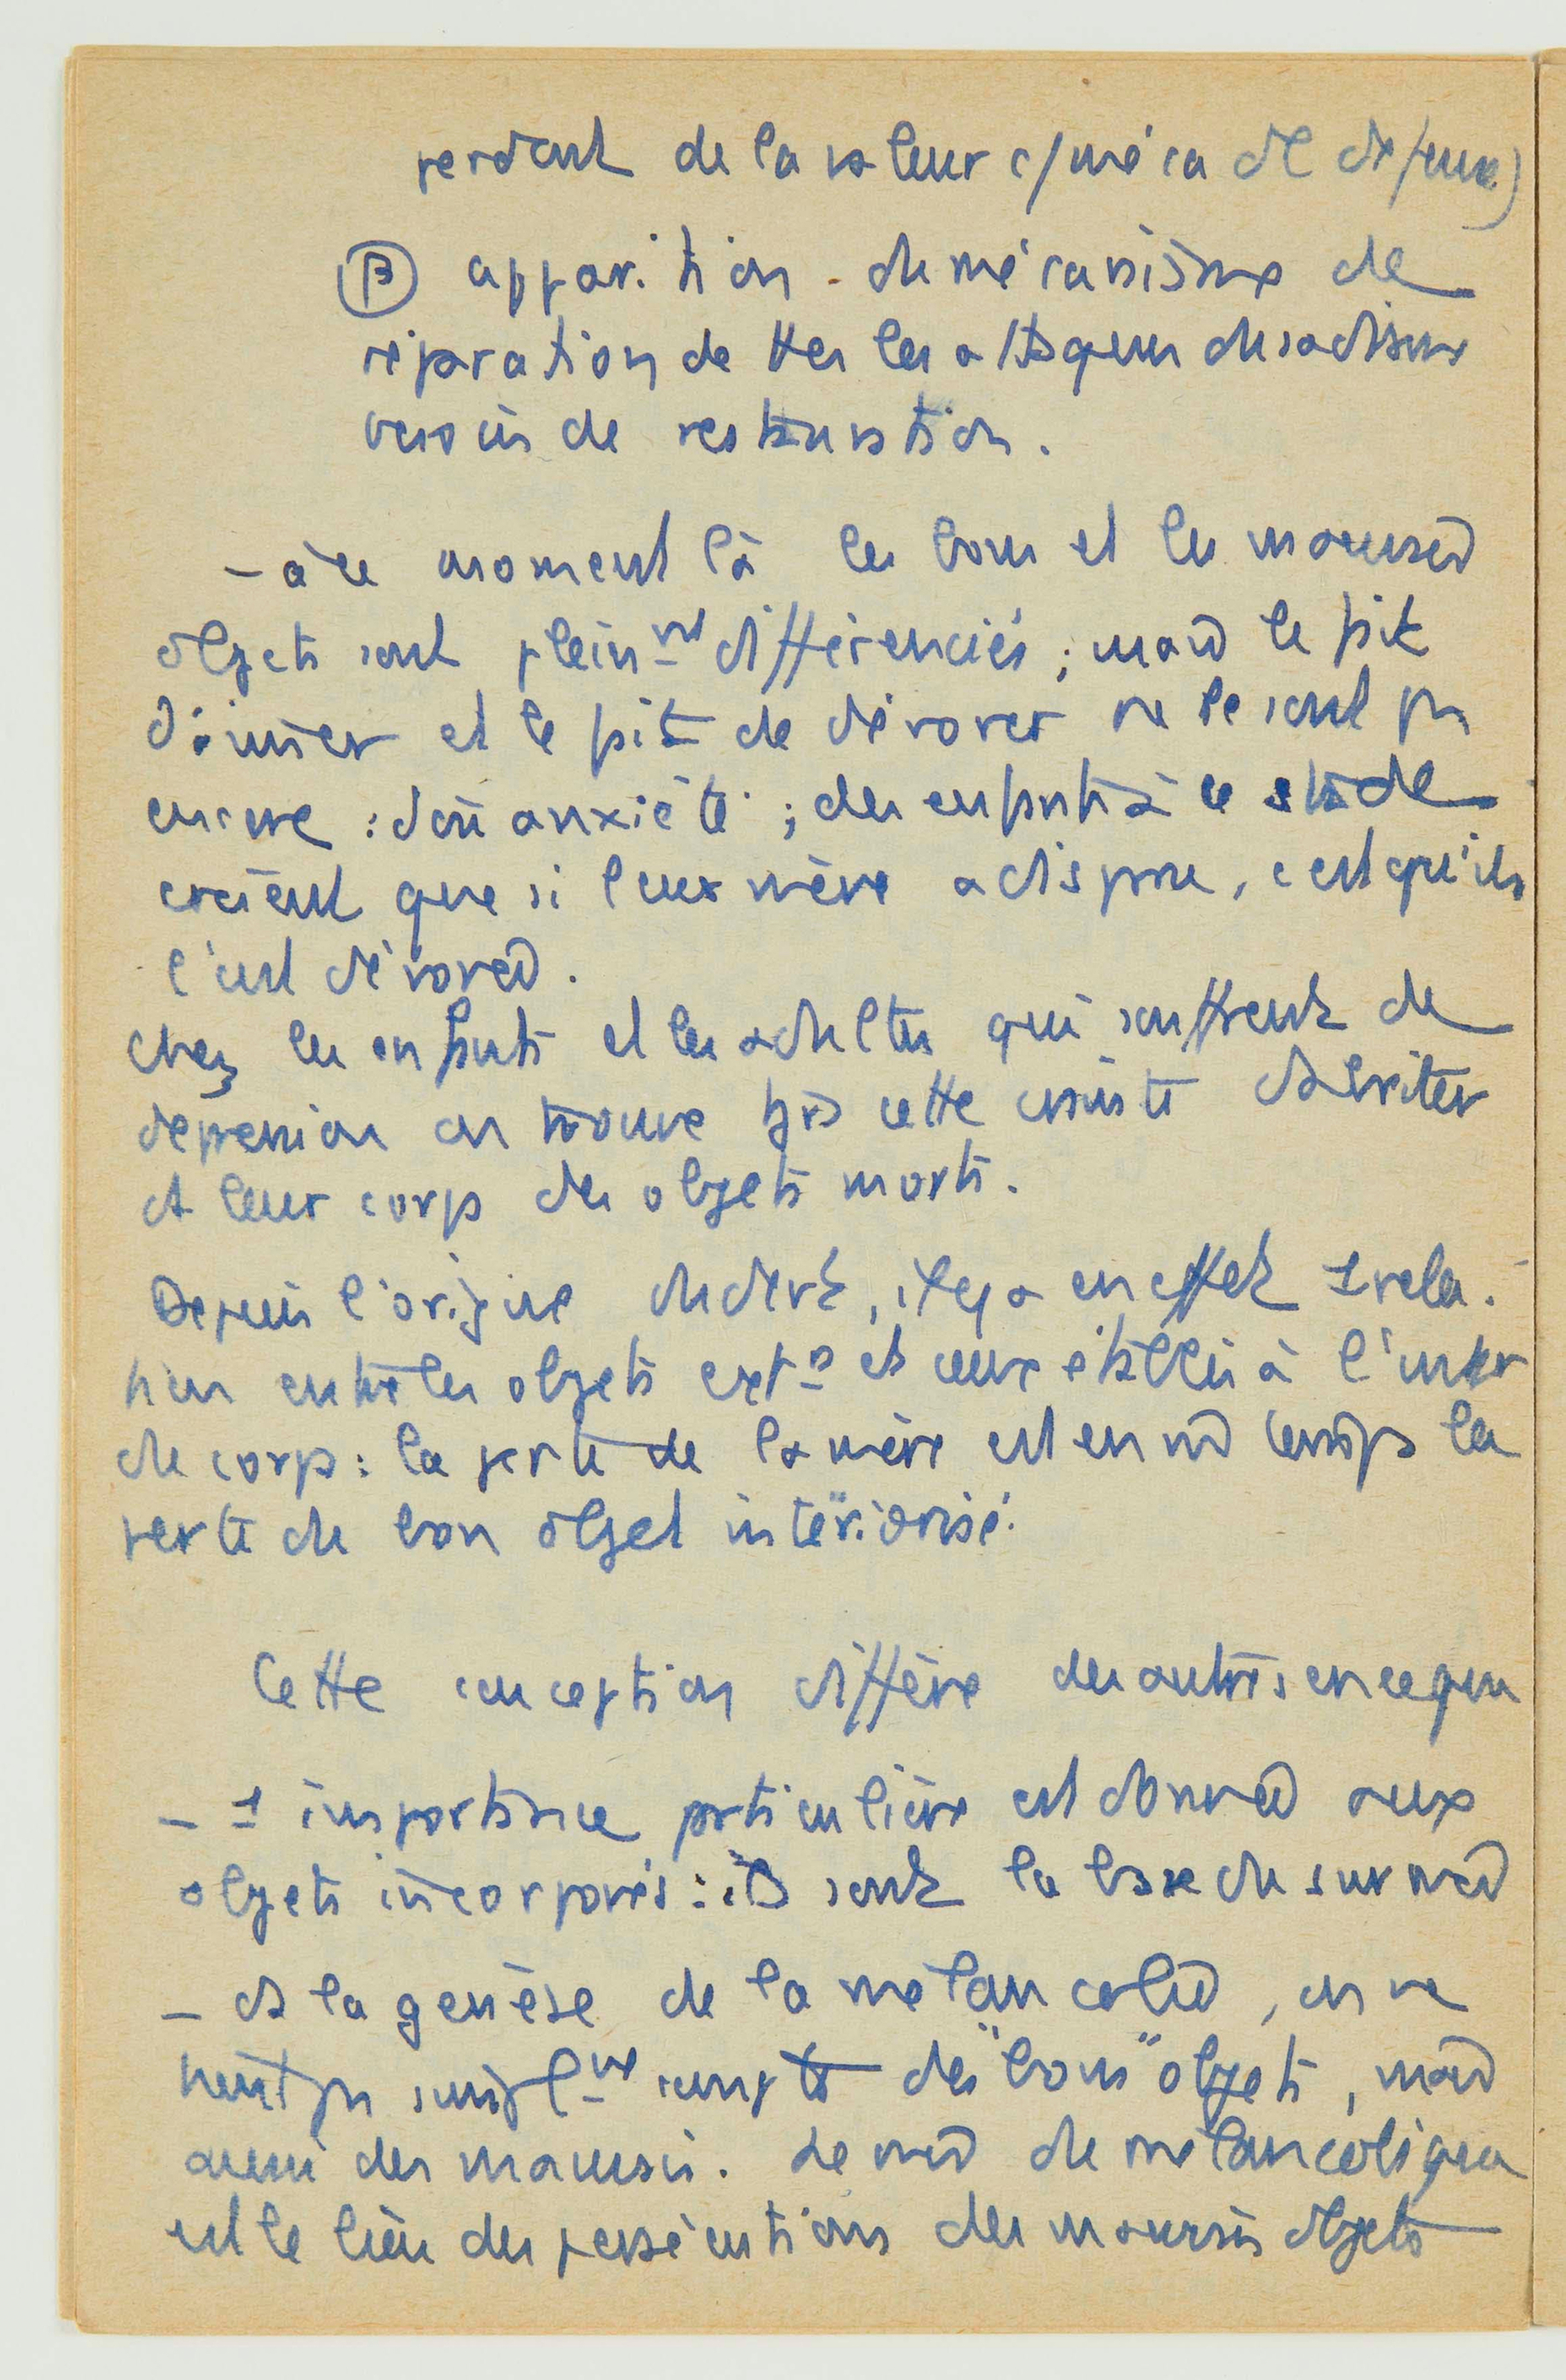 perdent de la valeur c/ méca de défense)
β apparition du mécanisme de
réparation de ttes les attaques du sadisme
besoin de restauration.
- à ce moment là les bons et les mauvais
objets sont plein-nt différenciés ; mais le fait
d'aimer et le fait de dévorer ne le sont pas
encore : d'où anxiété ; des enfants à ce stade
croient que si leur mère a disparu, c'est qu'ils
l'ont dévorée.
chez les enfants et les adultes qui souffrent de
dépression on trouve tjrs cette crainte d'abriter
ds leur corps des objets morts.
Depuis l'origine du dvt, il y a en effet 1 rela-
tion entre les objets ext-s et ceux établis à l'inter
du corps : la perte de la mère est en m temps la
perte du bon objet intériorisé.
Cette conception diffère des autres en ce que
- 1 importance particulière est donnée aux
objets incorporés : ils sont la base du surmoi
- ds la genèse de la mélancolie, on ne
tient pas simpl-nt compte des "bons" objets, mais
aussi des mauvais. Le moi du mélancolique
est le lieu des persécutions des mauvais objets